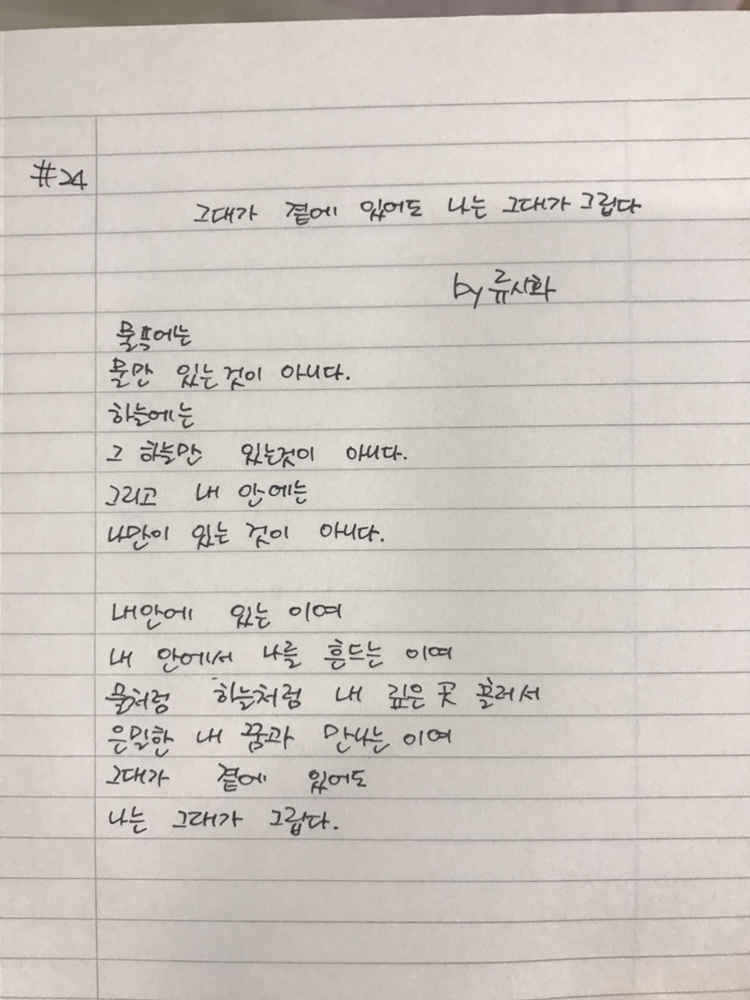 #24
그대가 곁에 있어도 나는 그대가 그립다
by 류시화
물속에는
물만 있는 것이 아니다.
하늘에는
그 하늘만 있는것이 아니다.
그리고 내 안에는
나만이 있는 것이 아니다.
내안에 있는 이여
내 안에서 나를 흔드는 이여
물처럼 하늘처럼 내 깊은 곳 흘러서
은밀한 내 꿈과 만나는 이여
그대가 곁에 있어도
나는 그대가 그립다.